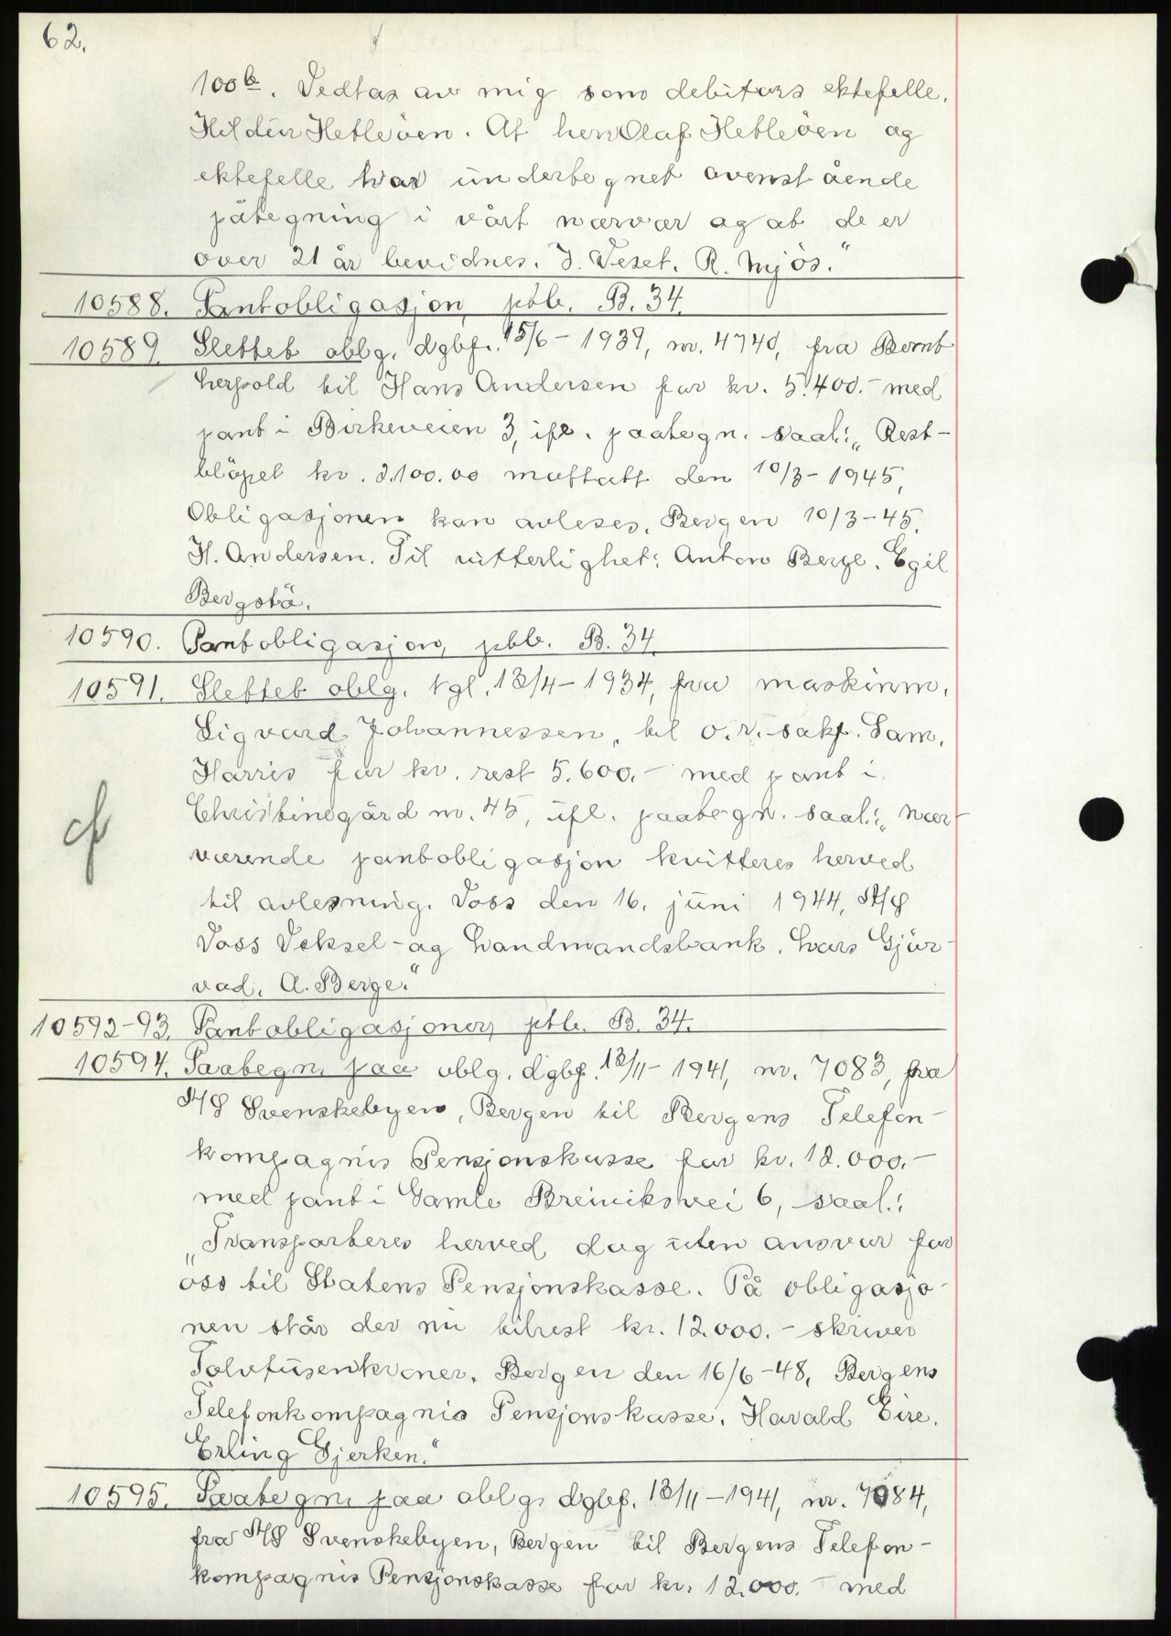 62.
100 b. Vedtas av mig som debitors ektefelle.
Hildur Hetleöen. At herr Olaf Hetleöen og
ektefelle har undertegnet ovenstående
påtegning i vårt nærvær og at de er
over 21 år bevidnes. J. Veset. R. Njøs."
10588. Pantobligasjon, ptb. B. 34.
10589. Slettet oblg. dgbf. 15/6 - 1939, nr. 4740, fra Bernt
herfold til Hans Andersen for kr. 5.400.- med
pant i Birkeveien 3, ifl. paategn. saal.: „Rest-
bløpet kr. 3.100.00 mottatt den 10/3 - 1945,
Obligasjonen kan avleses. Bergen 10/3 - 45.
H. Andersen. Til vitterlighet: Anton Berge. Egil
Bergstö.
10590. Pantobligasjon, ptb. B. 34.
10591. Slettet oblg. tgl. 13/4 - 1934, fra maskinm.
Sigvard Johannessen, til o.r. sakf. Sam.
Harris for kr. rest 5.600.- med pant i
Christinegård nr. 45, ifl. paategn. saal.: „Nær-
værende pantobligasjon kvitteres herved
til avlesning. Voss den 16. juni 1944, A/S
Voss Veksel- og Landmandsbank. Lars Gjør-
vad. A. Berge."
10592-93. Pantobligasjoner, ptb. B. 34.
10594. Paategn. paa oblg. dgbf. 13/11 - 1941, nr. 7083, fra
A/S Svenskebyen, Bergen til Bergens Telefon-
kompagnis Pensjonskasse for kr. 12.000.-
med pant i Gamle Breiviksvei 6, saal.:
„Transporteres herved dog uten ansvar for
oss til Statens Pensjonskasse. På obligasjo-
nen står der nu tilrest kr. 12.000.- skriver
Tolvtusenkroner. Bergen den 16/6 - 48. Bergens
Telefonkompagnis Pensjonskasse. Harald Eire.
Erling Gjerken."
10595. Paategn. paa oblg. dgbf. 13/11 - 1941, nr. 7084,
fra A/S Svenskebyen, Bergen til Bergens Telefon-
kompagnis Pensjonskasse for kr. 12.000.- med